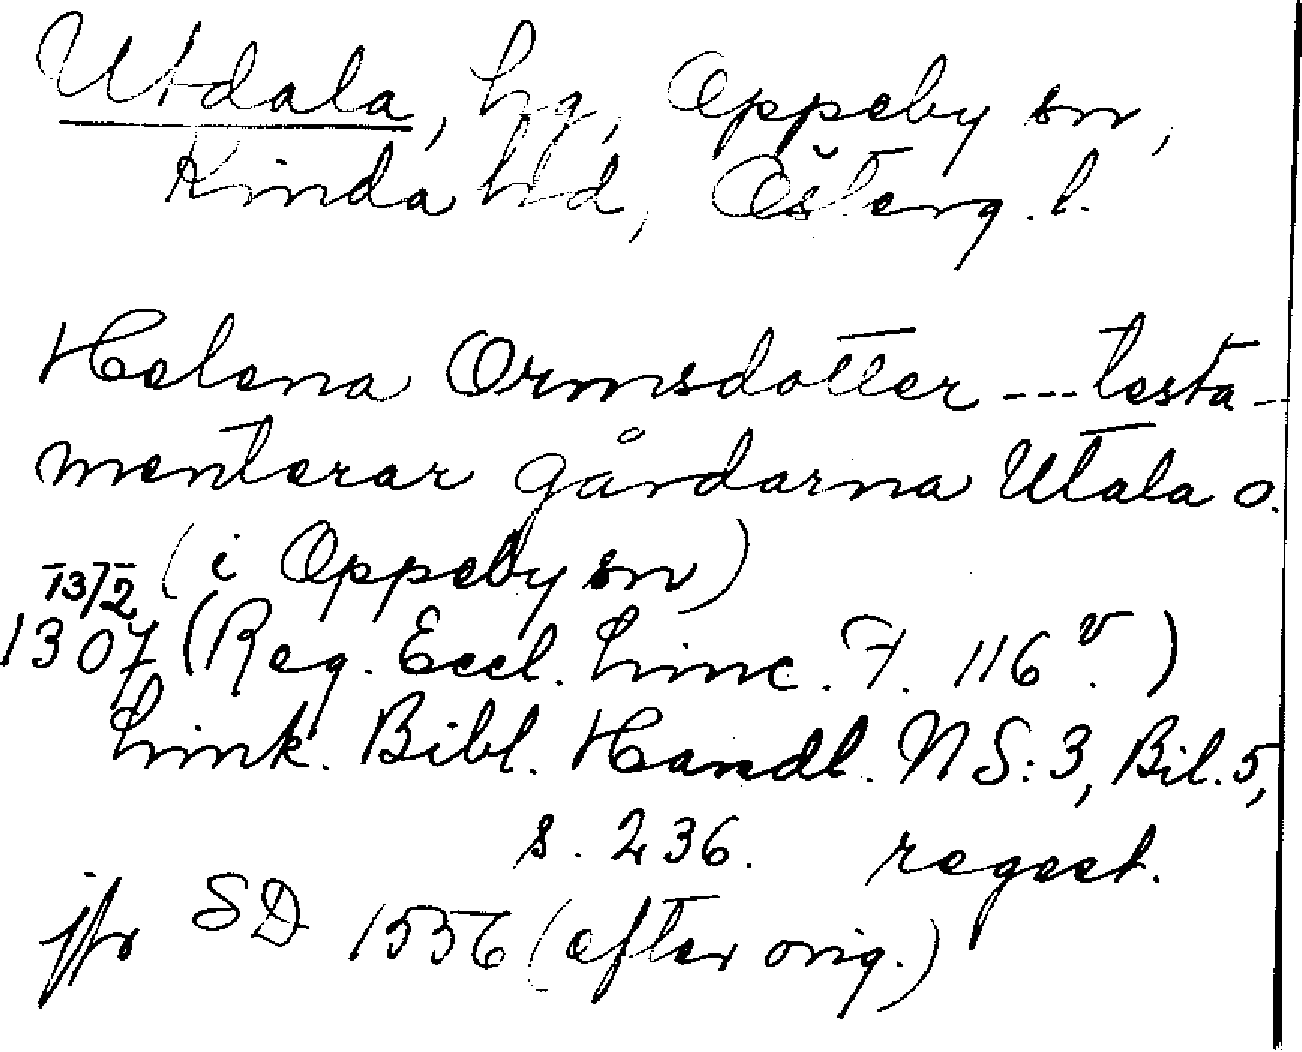 Utdala, hg, Oppeby sn,
Kinda hd, Österg. l.
Helena Ormsdotter --- testa-
menterar gårdarna Utala o.
(i Oppeby sn)
13/2
1307 (Reg. Eccl. Linc. F. 116 v.)
Link. Bibl. Handl. NS:3, Bil. 5,
s. 236. regest.
jfr SD 1556 (efter orig.)